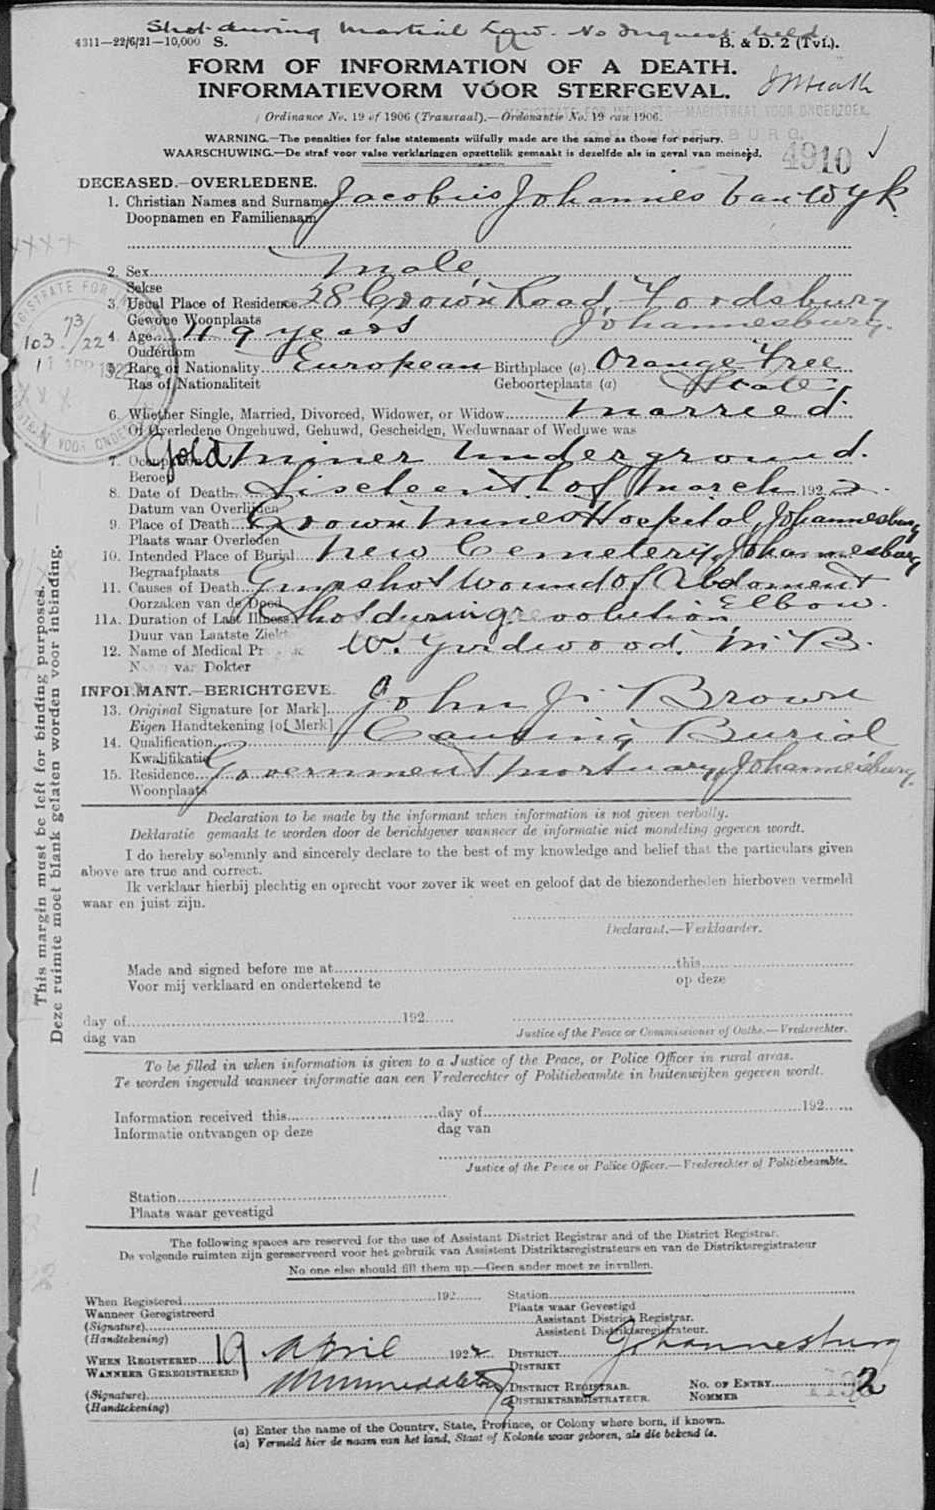 Shot during Martial Law. No Inquest held
4311—22/6/21—10,000 S. B. & D. 2 (Tvl.).
FORM OF INFORMATION OF A DEATH.
INFORMATIEVORM VÓOR STERFGEVAL.
Ordinance No. 19 of 1906 (Transvaal).—Ordonantie No. 19 van 1906.
WARNING.—The penalties for false statements wilfully made are the same as those for perjury.
WAARSCHUWING.—De straf voor valse verklaringen opzettelik gemaakt is dezelfde als in geval van meineed.
4910
DECEASED.—OVERLEDENE.
1. Christian Names and Surname Jacobus Johannes Van Wyk
Doopnamen en Familienaam
2. Sex Male
Sekse
3. Usual Place of Residence 28 Crown Road, Fordsburg
Gewone Woonplaats Johannesburg.
4. Age 49 years
Ouderdom
5. Race or Nationality European Birthplace (a) Orange Free
Ras of Nationaliteit Geboorteplaats (a) State
6. Whether Single, Married, Divorced, Widower, or Widow Married
Of Overledene Ongehuwd, Gehuwd, Gescheiden, Weduwnaar of Weduwe was
7. Occupation Gold Miner Underground.
Beroep
8. Date of Death Sixteenth of March 1922.
Datum van Overlijden
9. Place of Death Crown Mines Hospital, Johannesburg
Plaats waar Overleden
10. Intended Place of Burial New Cemetery, Johannesburg
Begraafplaats
11. Causes of Death Gunshot Wound of Abdoment
Oorzaken van de Dood Elbow.
11A. Duration of Last Illness Shot during revolution
Duur van Laatste Ziekte
12. Name of Medical Pr W. Girdwood, M B.
Naam van Dokter
INFORMANT.—BERICHTGEVE
13. Original Signature [or Mark] John J. Brown
Eigen Handtekening [of Merk]
14. Qualification Causing Burial
Kwalifikatie
15. Residence Government Mortuary, Johannesburg.
Woonplaats
This margin must be left for binding purposes.
Deze ruimte moet blank gelaten worden voor inbinding.
Declaration to be made by the informant when information is not given verbally.
Deklaratie gemaakt te worden door de berichtgever wanneer de informatie niet mondeling gegeven wordt.
I do hereby solemnly and sincerely declare to the best of my knowledge and belief that the particulars given
above are true and correct.
Ik verklaar hierbij plechtig en oprecht voor zover ik weet en geloof dat de biezonderheden hierboven vermeld
waar en juist zijn.
Declarant.—Verklaarder.
Made and signed before me at this
Voor mij verklaard en ondertekend te op deze
day of 192
dag van Justice of the Peace or Commissioner of Oaths.—Vrederechter.
To be filled in when information is given to a Justice of the Peace, or Police Officer in rural areas.
Te worden ingevuld wanneer informatie aan een Vrederechter of Politiebeambte in buitenwijken gegeven wordt.
Information received this day of 192
Informatie ontvangen op deze dag van
Justice of the Peace or Police Officer.—Vrederechter of Politiebeambte.
Station
Plaats waar gevestigd
The following spaces are reserved for the use of Assistant District Registrar and of the District Registrar.
De volgende ruimten zijn gereserveerd voor het gebruik van Assistent Distriktsregistrateurs en van de Distriktsregistrateur
No one else should fill them up.—Geen ander moet ze invullen.
When Registered 192 Station
Wanneer Geregistreerd Plaats waar Gevestigd
(Signature) Assistant District Registrar.
(Handtekening) Assistent Distriktsregistrateur.
WHEN REGISTERED 19 April 1922. DISTRICT Johannesburg
WANNEER GEREGISTREERD DISTRIKT
(Signature) DISTRICT REGISTRAR. NO. OF ENTRY 1192
(Handtekening) DISTRIKTSREGISTRATEUR. NOMMER
(a) Enter the name of the Country, State, Province, or Colony where born, if known.
(a) Vermeld hier de naam van het land, Staat of Kolonie waar geboren, als die bekend is.